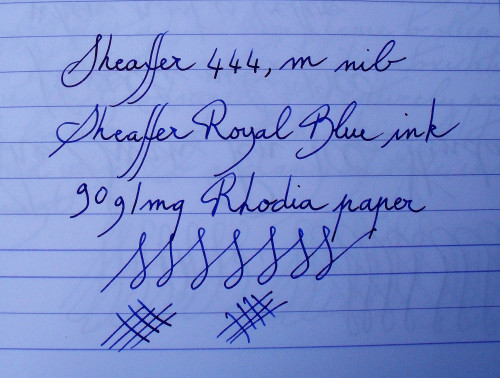 Sheaffer 444, m nib
Sheaffer Royal Blue ink
90 g/mq Rhodia paper